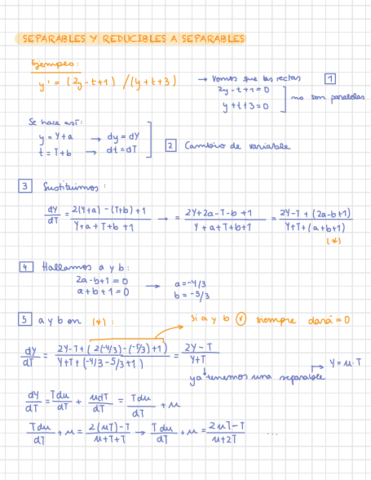 SEPARABLES Y REDUCIBLES A SEPARABLES
Ejemplo:
y' = (2y - t + 1) / (y + t + 3) → vemos que las rectas 1
2y - t + 1 = 0
y + t + 3 = 0
no son paralelas
Se hace así:
y = Y + a → dy = dY
t = T + b → dt = dT
2 Cambio de variable
3 Sustituimos:
dY/dT = 2(Y+a) - (T+b) + 1 / Y + a + T + b + 1 → = 2Y + 2a - T - b + 1 / Y + a + T + b + 1 = 2Y - T + (2a - b + 1) / Y + T + (a + b + 1)
(*)
4 Hallamos a y b:
2a - b + 1 = 0 → a = -4/3
a + b + 1 = 0 b = -5/3
5 a y b en (*): si a y b siempre dará = 0
dY/dT = 2Y - T + (2(-4/3) - (-5/3) + 1) / Y + T + (-4/3 - 5/3 + 1) = 2Y - T / Y + T
ya tenemos una separable → Y = u · T
dY/dT = Tdu/dT + udT/dT = Tdu/dT + u
Tdu/dT + u = 2(uT) - T / u + T + T → Tdu/dT + u = 2uT - T / u + 2T ...